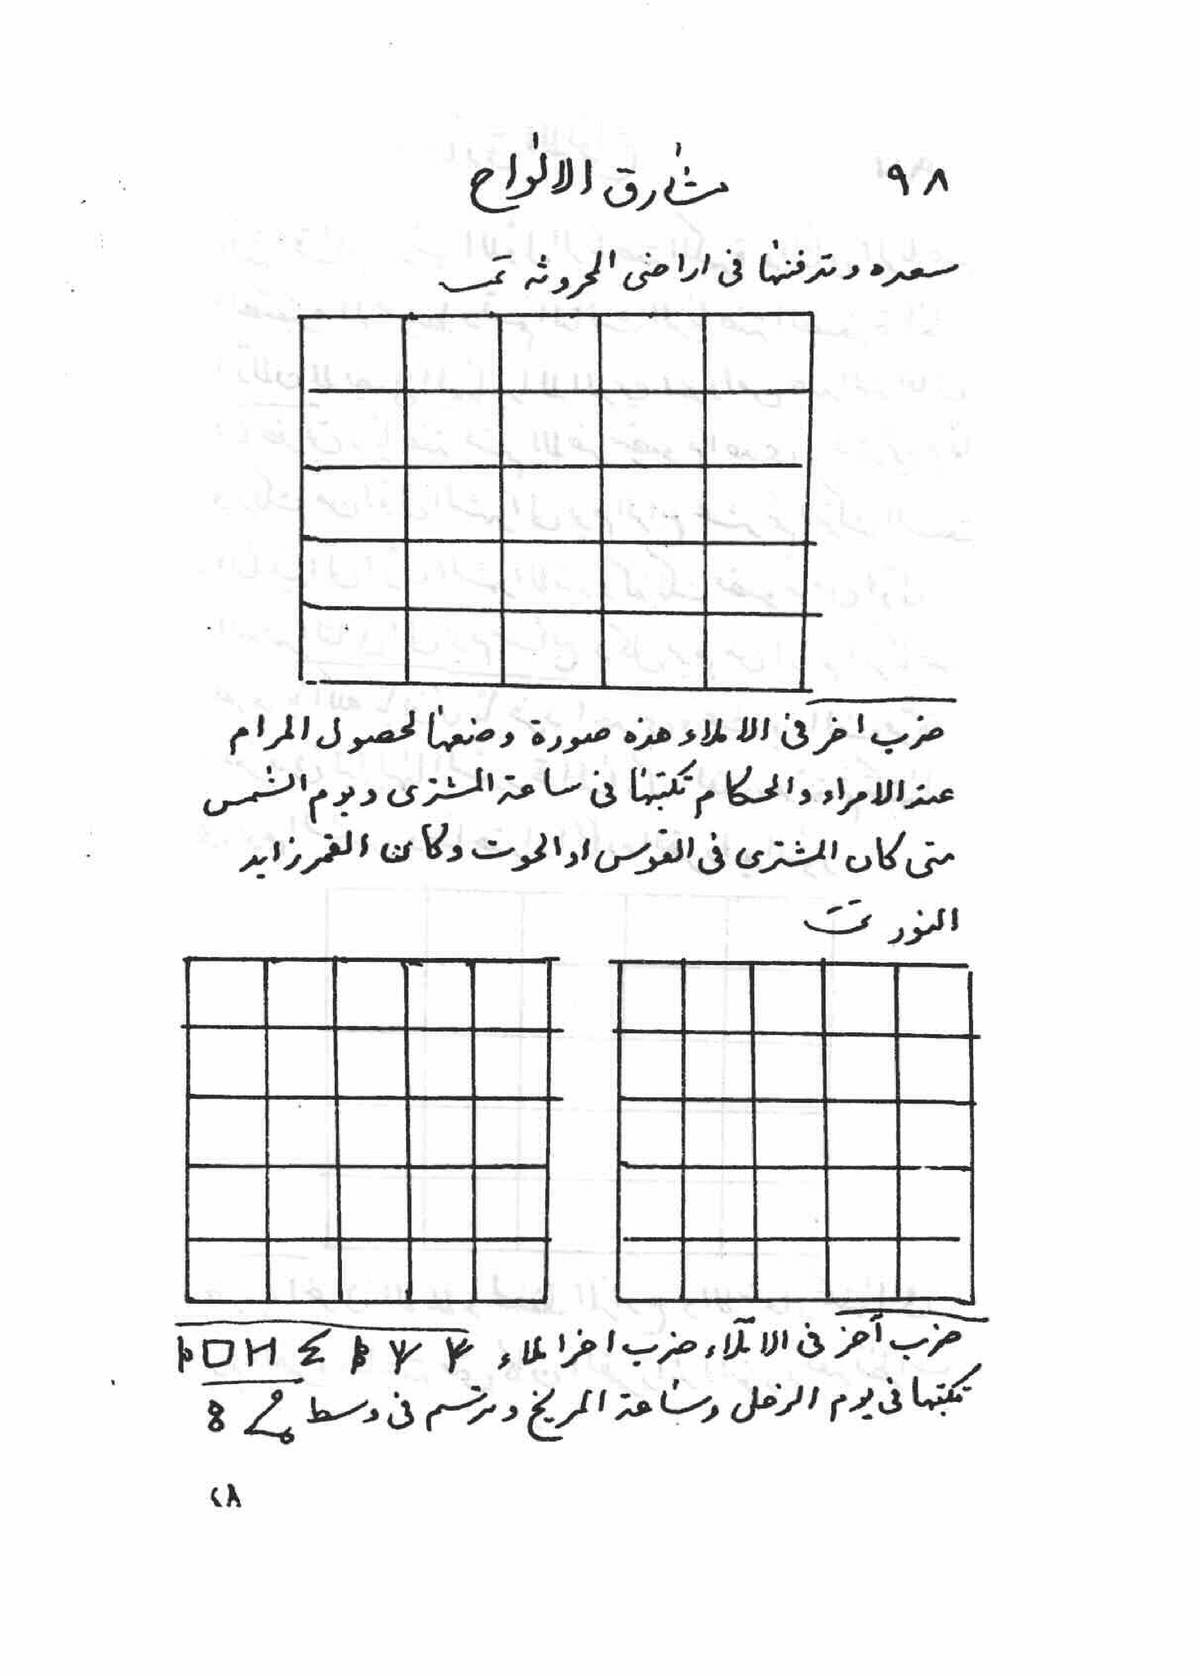 ٩٨
مشارق الالواح
سعده وتدفنها فى اراضى المحروثه تمت
ضرب اخر فى الاملاء هذه صورة وضعها لحصول المرام
عند الامراء والحكام تكتبها فى ساعة المشترى ويوم الشمس
متى كان المشترى فى القوس او الحوت وكان القمر زايد
النور تمت
ضرب أخر فى الاملاء ضرب اخر املاء
تكتبها فى يوم الزحل وساعة المريخ وترسم فى وسط
٢٨